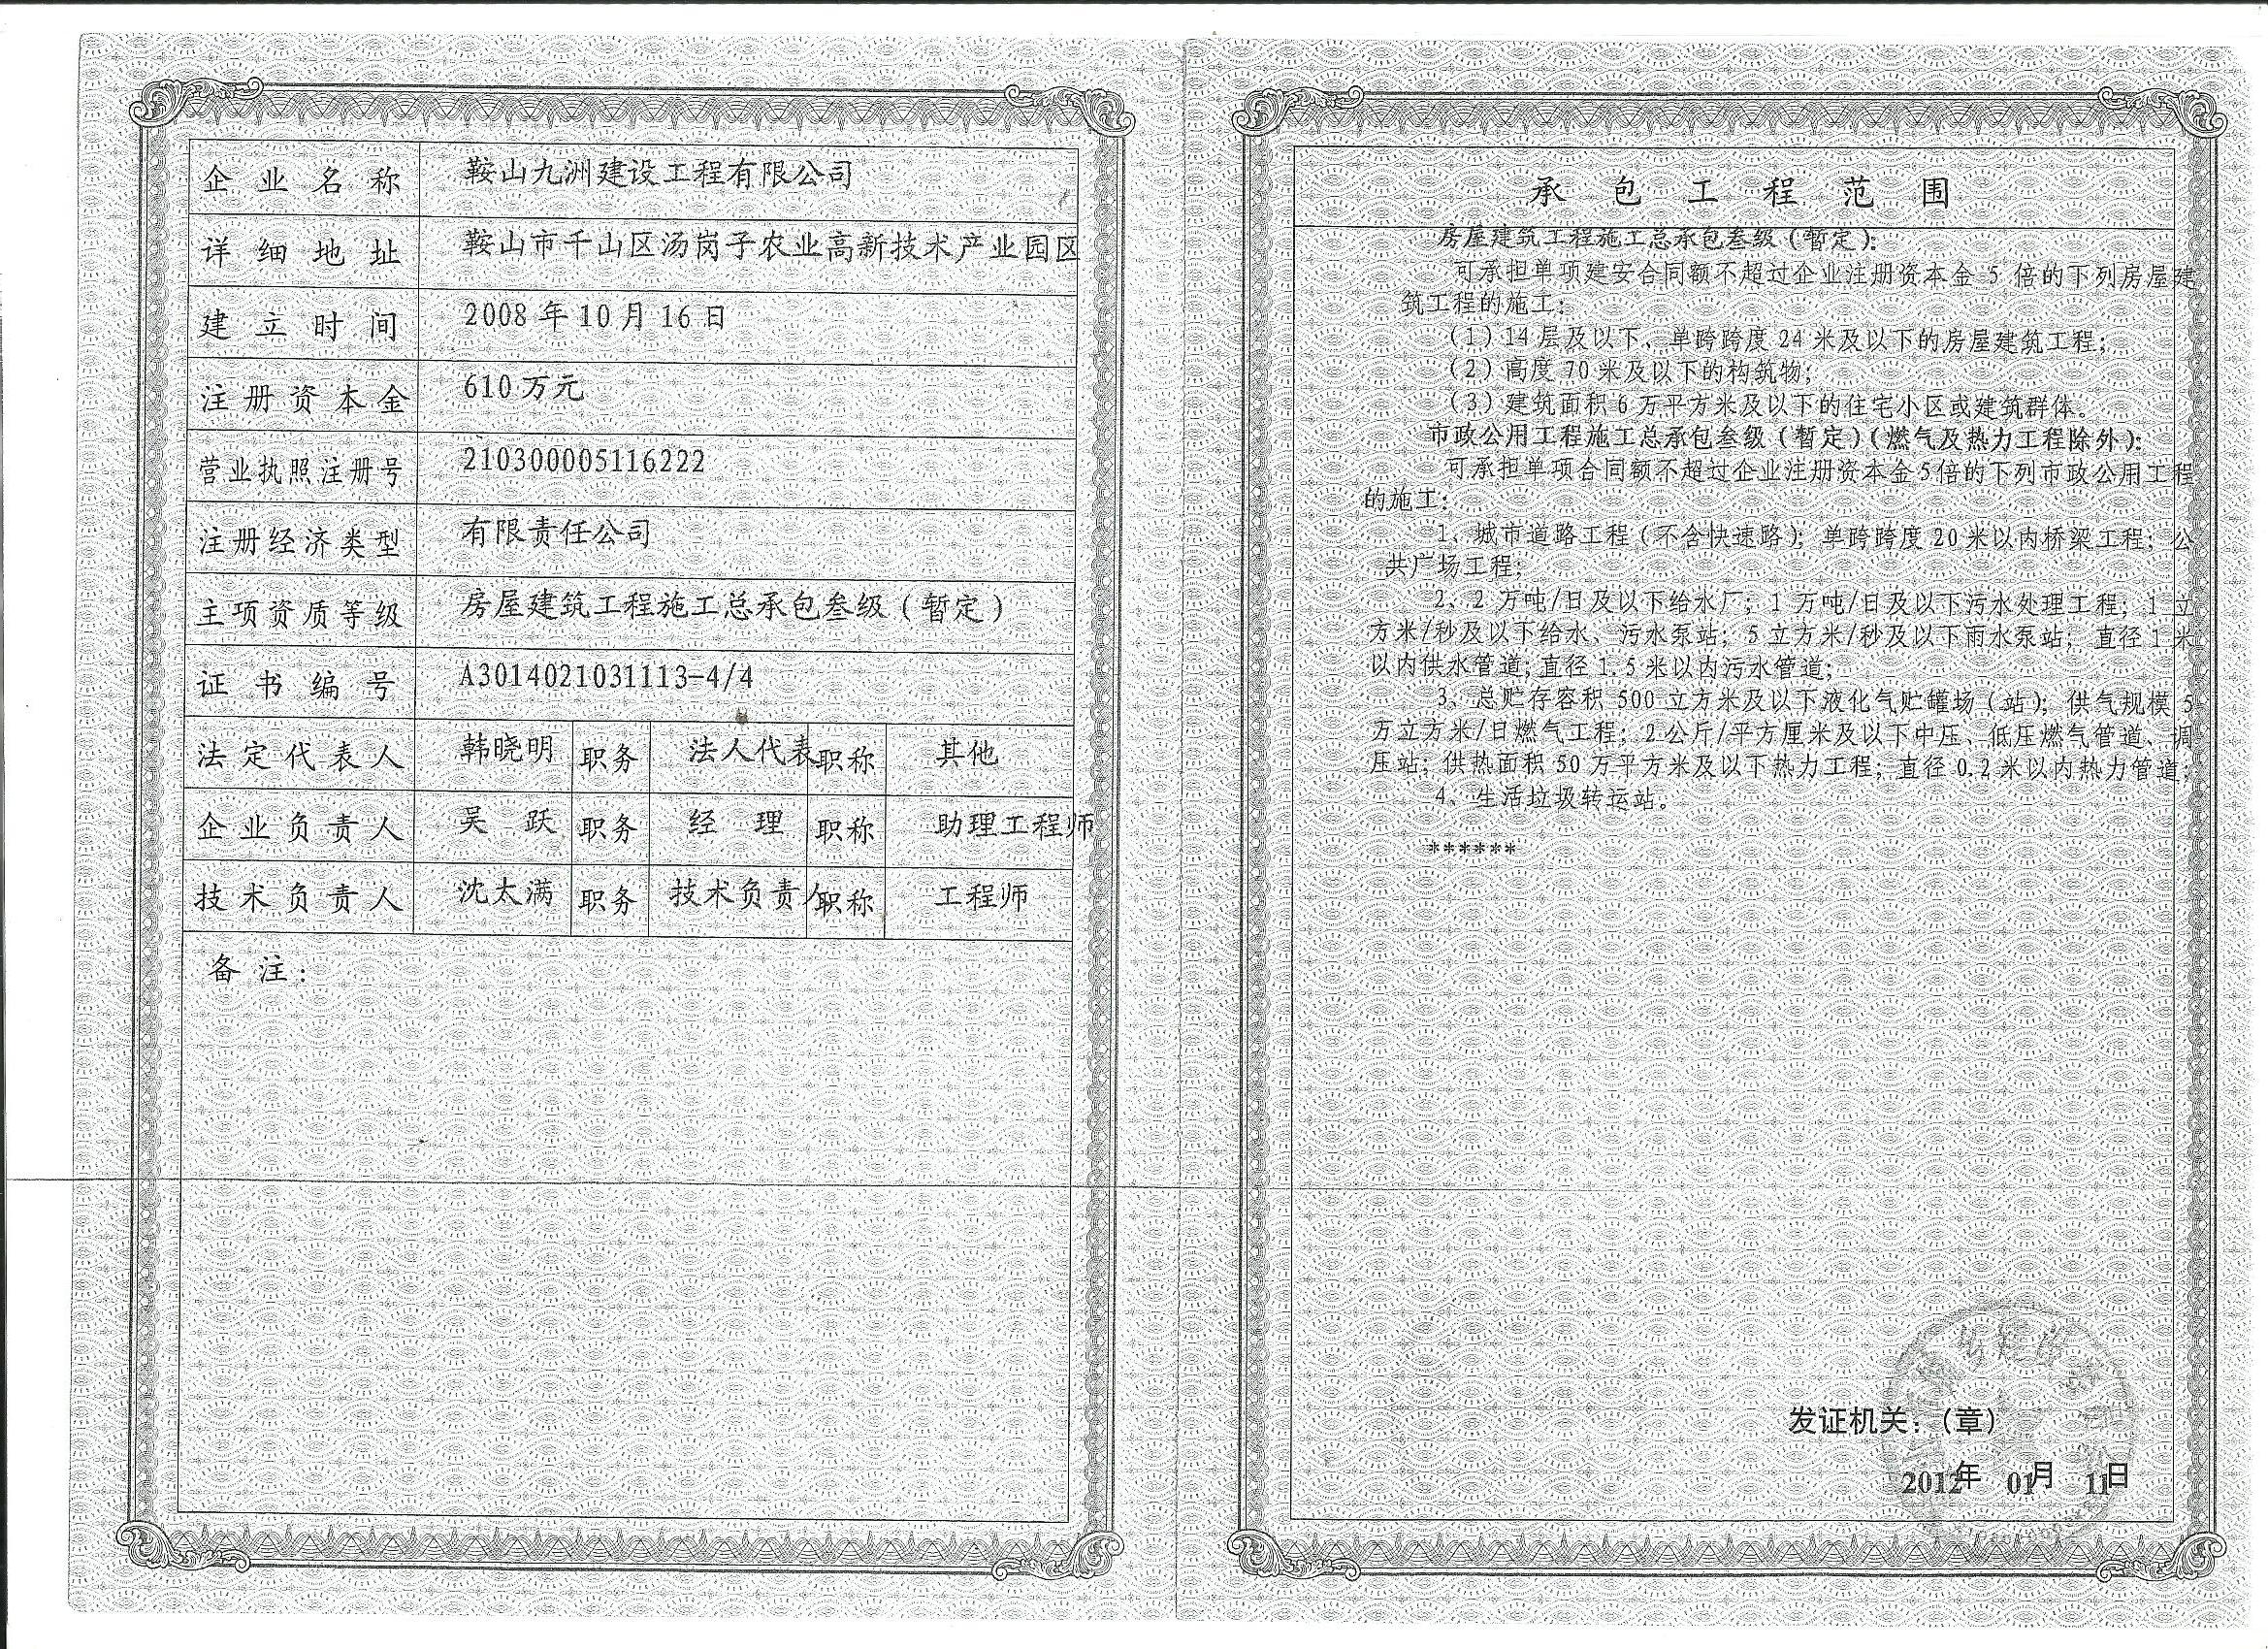 企业名称 鞍山九洲建设工程有限公司
详细地址 鞍山市千山区汤岗子农业高新技术产业园区
建立时间 2008年10月16日
注册资本金 610万元
营业执照注册号 210300005116222
注册经济类型 有限责任公司
主项资质等级 房屋建筑工程施工总承包叁级（暂定）
证书编号 A3014021031113-4/4
法定代表人 韩晓明 职务 法人代表 职称 其他
企业负责人 吴跃 职务 经理 职称 助理工程师
技术负责人 沈太满 职务 技术负责人 职称 工程师
备注：
承包工程范围
房屋建筑工程施工总承包叁级（暂定）：
可承担单项建安合同额不超过企业注册资本金5倍的下列房屋建
筑工程的施工：
（1）14层及以下、单跨跨度24米及以下的房屋建筑工程；
（2）高度70米及以下的构筑物；
（3）建筑面积6万平方米及以下的住宅小区或建筑群体。
市政公用工程施工总承包叁级（暂定）（燃气及热力工程除外）：
可承担单项合同额不超过企业注册资本金5倍的下列市政公用工程
的施工：
1、城市道路工程（不含快速路）；单跨跨度20米以内桥梁工程；公
共广场工程；
2、2万吨/日及以下给水厂；1万吨/日及以下污水处理工程；1立
方米/秒及以下给水、污水泵站；5立方米/秒及以下雨水泵站；直径1米
以内供水管道；直径1.5米以内污水管道；
3、总贮存容积500立方米及以下液化气贮罐场（站）；供气规模5
万立方米/日燃气工程；2公斤/平方厘米及以下中压、低压燃气管道、调
压站；供热面积50万平方米及以下热力工程；直径0.2米以内热力管道；
4、生活垃圾转运站。
******
发证机关：（章）
2012年 01月 11日